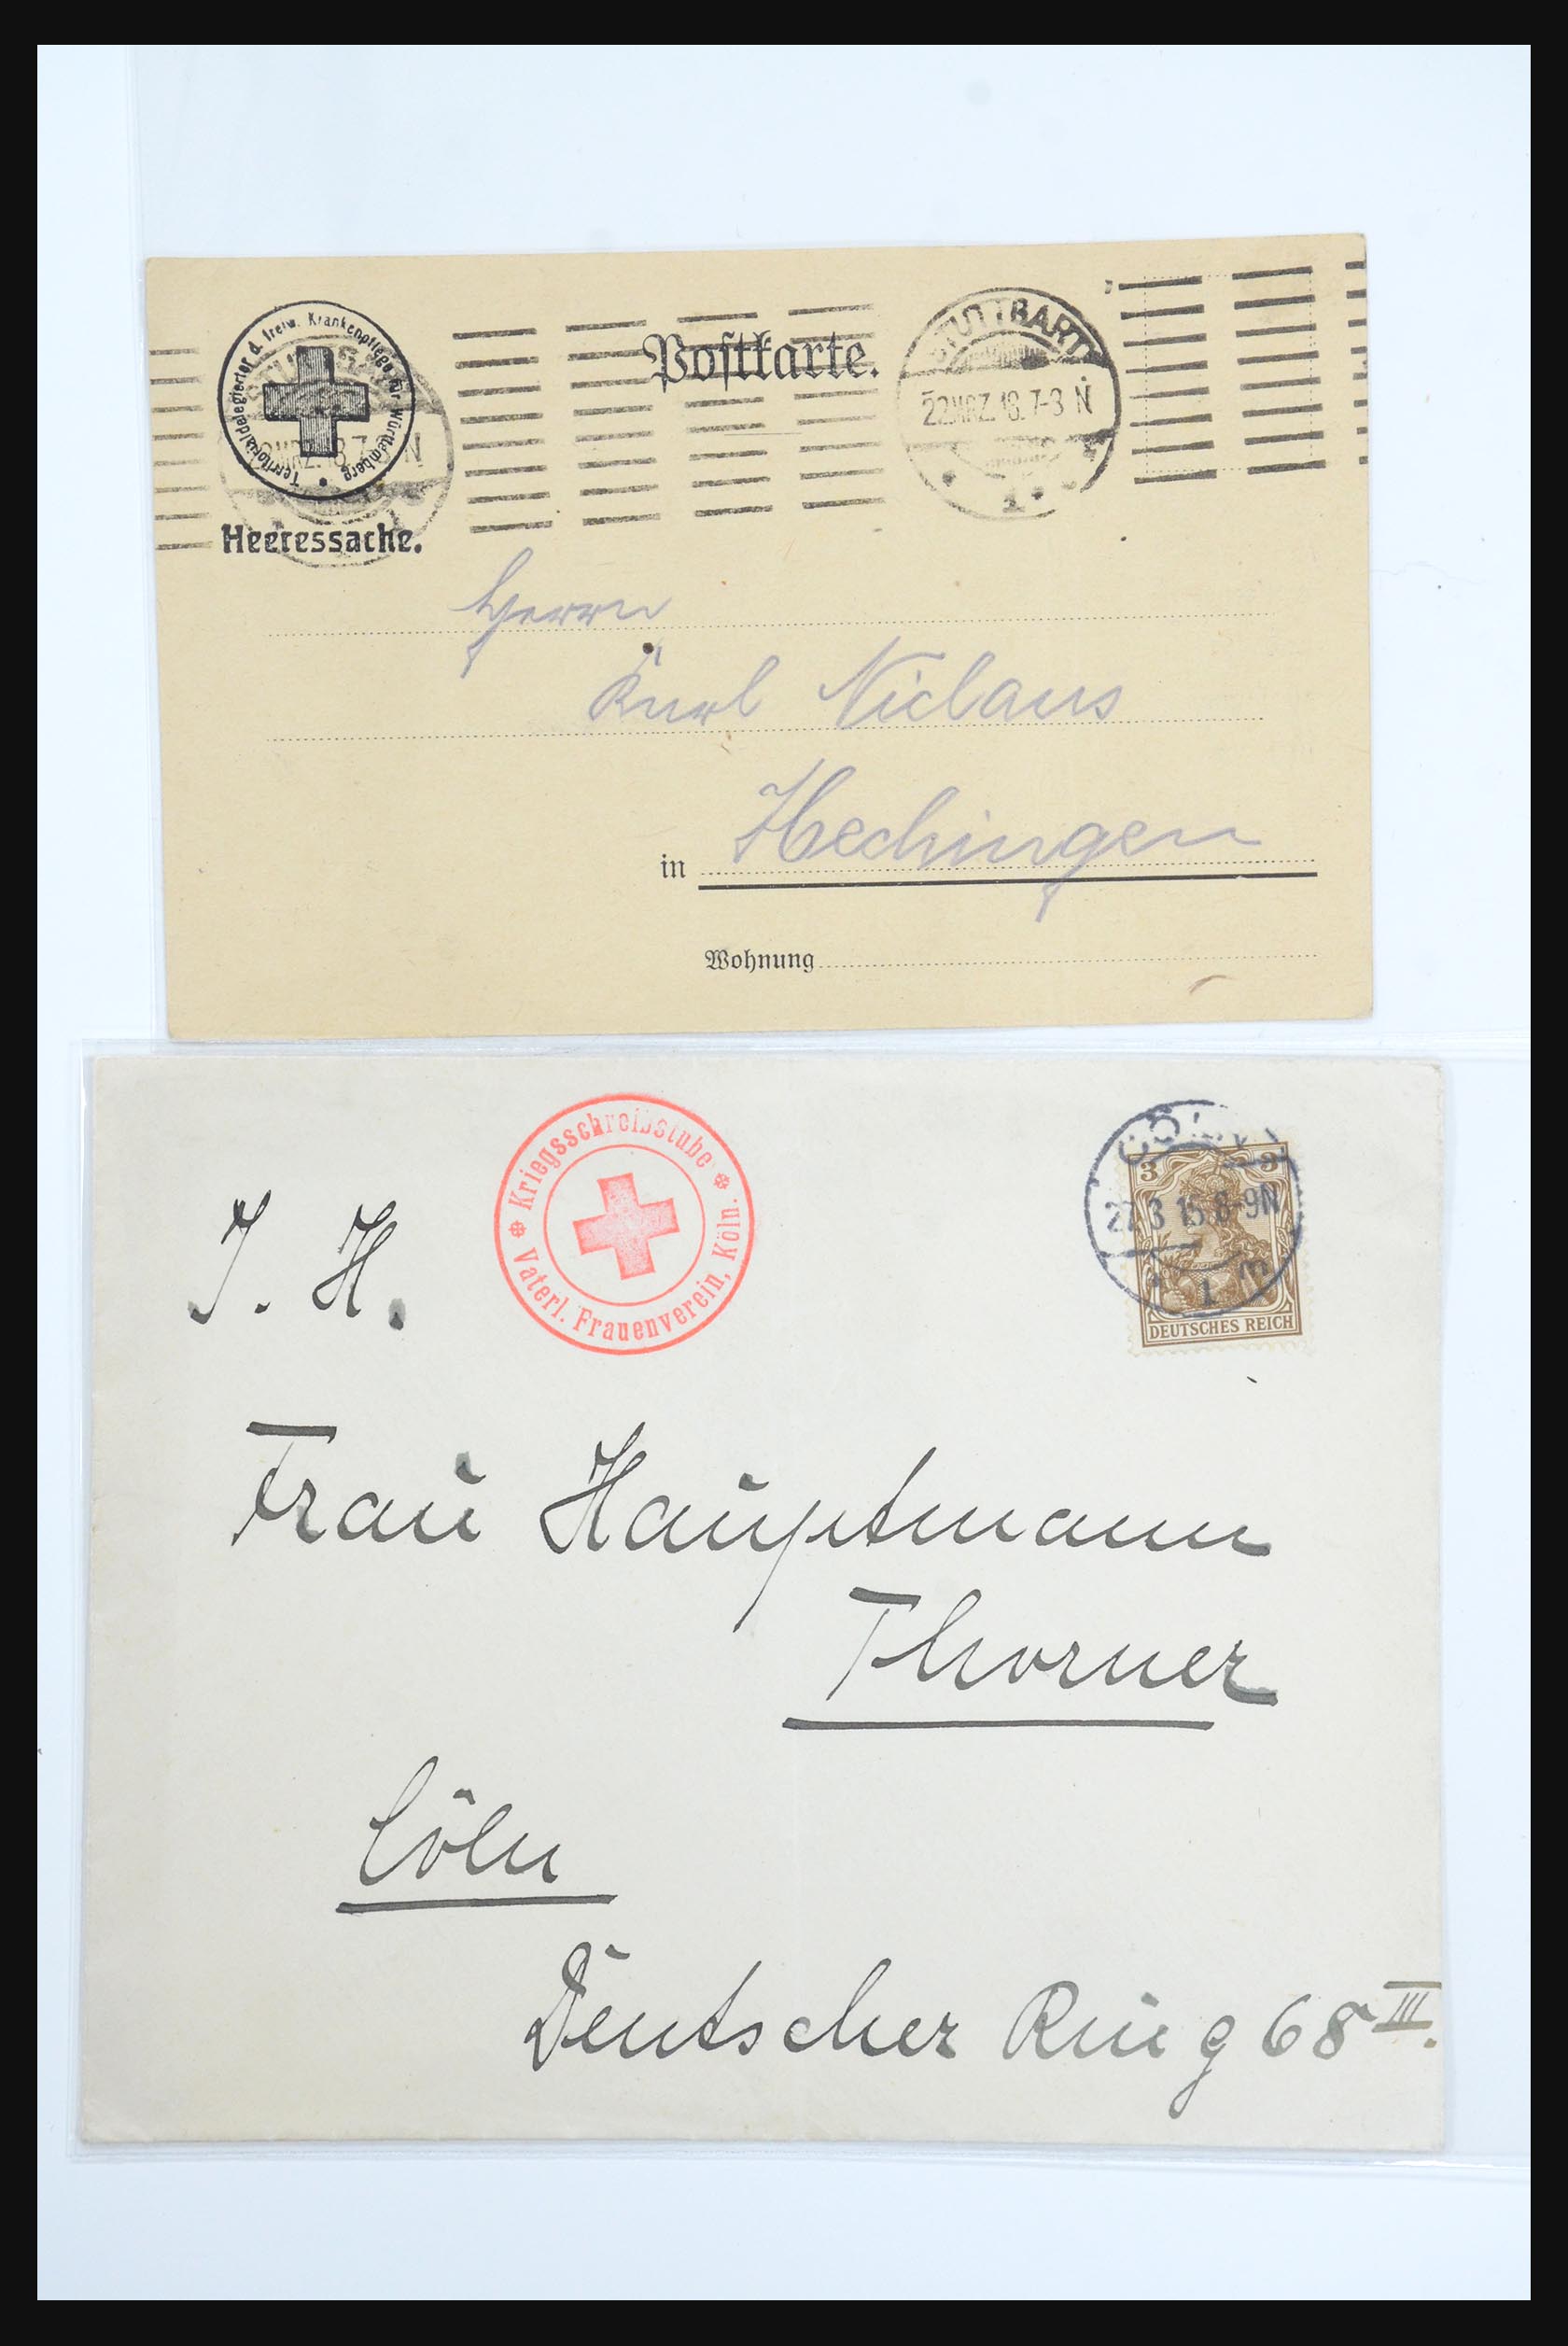 Territorialdelegierter d. freiw. Krankenpflege für Württemberg
Postkarte.
STUTTGART
22.MRZ.18.7-8 N
1
Heeressache.
Herrn
Karl Niclaus
in Hechingen
Wohnung
Kriegsschreibstube
Vaterl. Frauenverein, Köln.
CÖLN
27.3 15.8-9N
* 1 m
3 3
DEUTSCHES REICH
J. H.
Frau Hauptmann
Thorner
Cöln
Deutscher Ring 68 III.